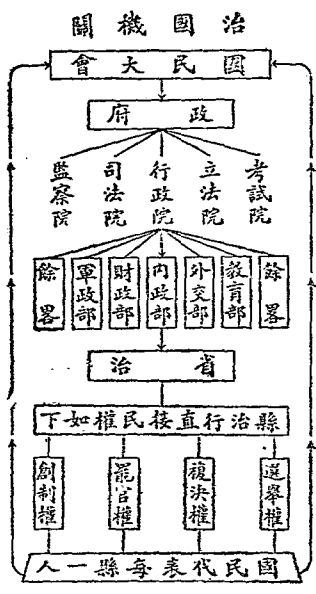 治國機關
國民大會
政府
考試院
立法院
行政院
司法院
監察院
餘畧
教育部
外交部
內政部
財政部
軍政部
餘畧
省治
縣治行直接民權如下
選舉權
複決權
罷官權
創制權
國民代表每縣一人